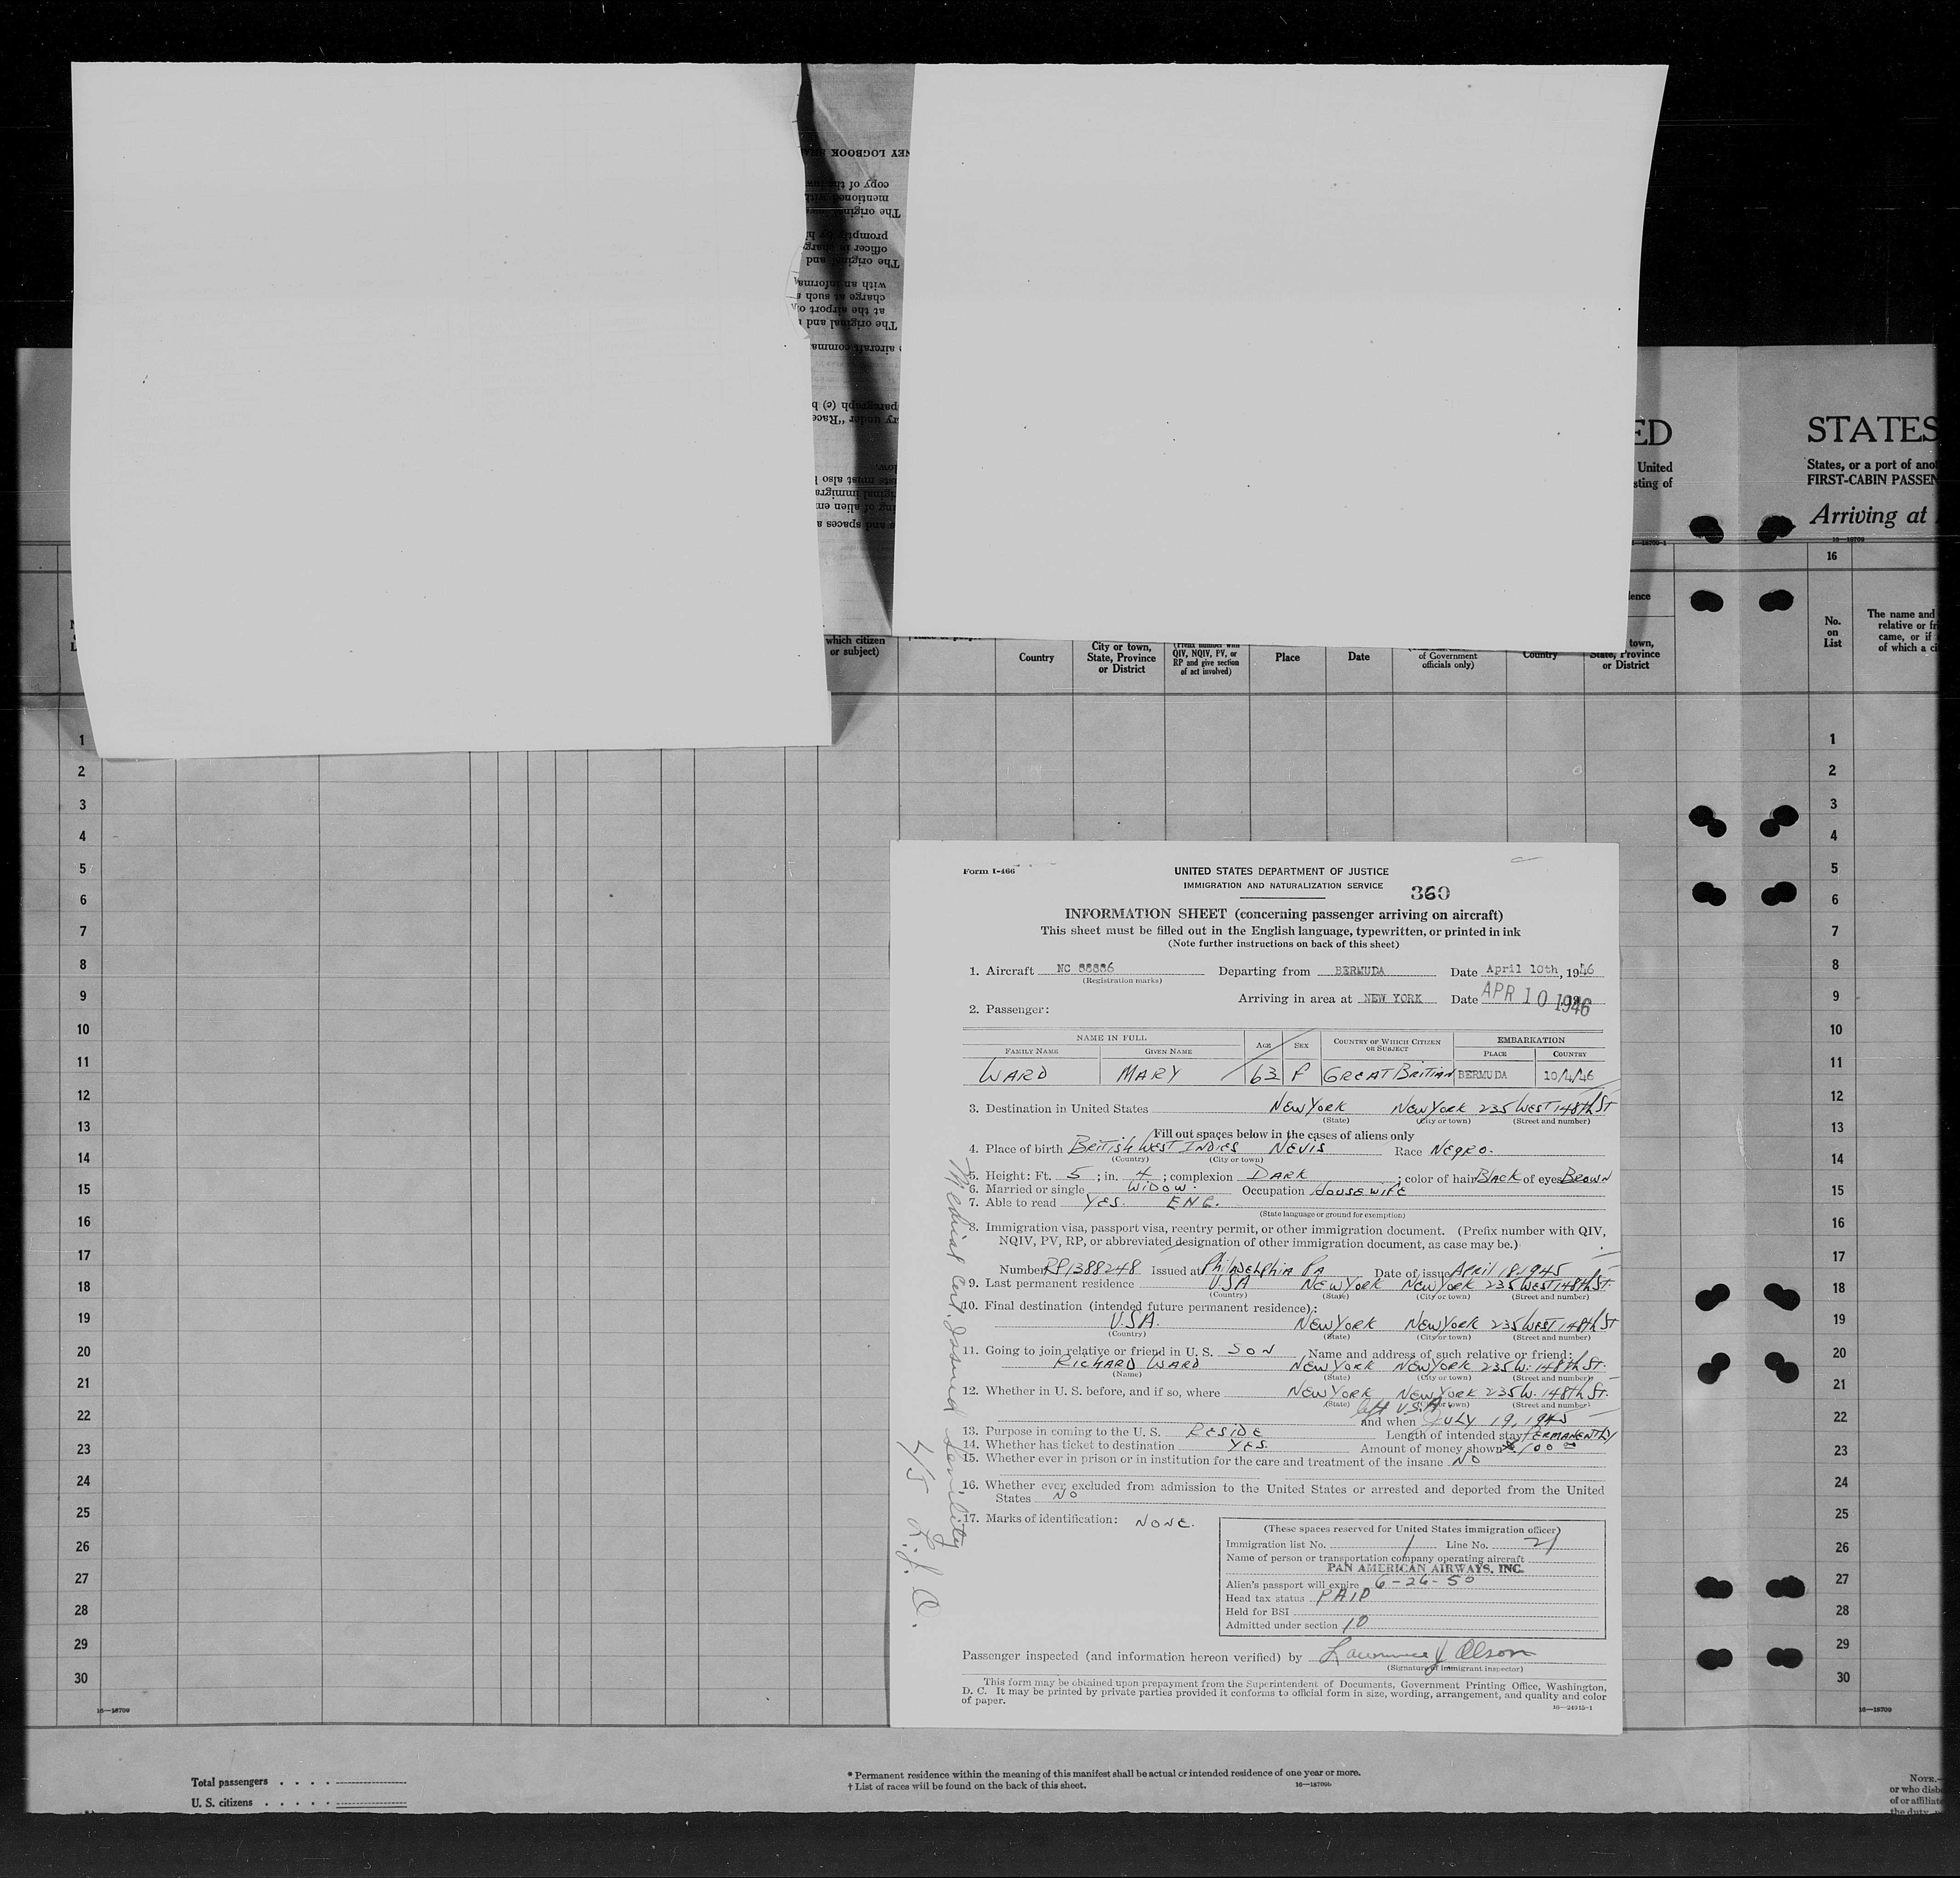 NEY LOGBOOK
copy of the
mentioned with
The original
promptly by
officer in charge
The original and
with an informa
charge at such
at the airport
The original and
aircraft comma
paragraph (c) b
under "Race
low.
must also
original immigra
of alien em
and spaces a
ED
United
sting of
STATES
States, or a port of ano
FIRST-CABIN PASSEN
Arriving at
16
No.
on
List
The name and
relative or fr
came, or if
of which a ci
which citizen
or subject)
Country
City or town,
State, Province
or District
QIV, NQIV, PV, or
RP and give section
of act involved)
Place
Date
of Government
officials only)
Country
town,
State, Province
or District
1 1
2 2
3 3
4 4
5 5
6 6
7 7
8 8
9 9
10 10
11 11
12 12
13 13
14 14
15 15
16 16
17 17
18 18
19 19
20 20
21 21
22 22
23 23
24 24
25 25
26 26
27 27
28 28
29 29
30 30
16—18709 16—18709
Form I-466
UNITED STATES DEPARTMENT OF JUSTICE
IMMIGRATION AND NATURALIZATION SERVICE
360
INFORMATION SHEET (concerning passenger arriving on aircraft)
This sheet must be filled out in the English language, typewritten, or printed in ink
(Note further instructions on back of this sheet)
1. Aircraft NC 88886 Departing from BERMUDA Date April 10th, 1946
(Registration marks)
Arriving in area at NEW YORK Date APR 10 1946
2. Passenger:
NAME IN FULL AGE SEX COUNTRY OF WHICH CITIZEN OR SUBJECT EMBARKATION
FAMILY NAME GIVEN NAME PLACE COUNTRY
WARD MARY 63 F GREAT BRITIAN BERMUDA 10/4/46
3. Destination in United States NEW YORK NEW YORK 235 WEST 148th ST
(State) (City or town) (Street and number)
Fill out spaces below in the cases of aliens only
4. Place of birth BRITISH WEST INDIES NEVIS Race NEGRO.
(Country) (City or town)
5. Height: Ft. 5; in. 4; complexion DARK; color of hair BLACK of eyes BROWN
6. Married or single WIDOW. Occupation HOUSEWIFE
7. Able to read YES. ENG.
(State language or ground for exemption)
8. Immigration visa, passport visa, reentry permit, or other immigration document. (Prefix number with QIV,
NQIV, PV, RP, or abbreviated designation of other immigration document, as case may be.)
Number RP1388248 Issued at PHILADELPHIA PA Date of issue APRIL 18, 1945
9. Last permanent residence USA NEW YORK NEW YORK 235 WEST 148th ST.
(Country) (State) (City or town) (Street and number)
10. Final destination (intended future permanent residence):
U.S.A. NEW YORK NEW YORK 235 WEST 148th ST
(Country) (State) (City or town) (Street and number)
11. Going to join relative or friend in U. S. SON Name and address of such relative or friend:
RICHARD WARD NEW YORK NEW YORK 235 W. 148th ST.
(Name) (State) (City or town) (Street and number)
12. Whether in U. S. before, and if so, where NEW YORK NEW YORK 235 W. 148th ST.
(State) (City or town) (Street and number)
left U.S.A.
and when JULY 19, 1945
13. Purpose in coming to the U. S. RESIDE Length of intended stay PERMANENTLY
14. Whether has ticket to destination YES. Amount of money shown $100 00
15. Whether ever in prison or in institution for the care and treatment of the insane NO
16. Whether ever excluded from admission to the United States or arrested and deported from the United
States NO
17. Marks of identification: NONE.
(These spaces reserved for United States immigration officer)
Immigration list No. 1 Line No. 21
Name of person or transportation company operating aircraft
PAN AMERICAN AIRWAYS, INC.
Alien's passport will expire 6-26-50
Head tax status PAID
Held for BSI
Admitted under section 10
Passenger inspected (and information hereon verified) by Lawrence J Olson
(Signature of immigrant inspector)
This form may be obtained upon prepayment from the Superintendent of Documents, Government Printing Office, Washington,
D. C. It may be printed by private parties provided it conforms to official form in size, wording, arrangement, and quality and color
of paper.
16—24915-1
Medical Cert. Issued Senility
L.J.O.
Total passengers
U. S. citizens
* Permanent residence within the meaning of this manifest shall be actual or intended residence of one year or more.
† List of races will be found on the back of this sheet.
16—18709b
NOTE.—
or who disb
of or affiliate
the duty